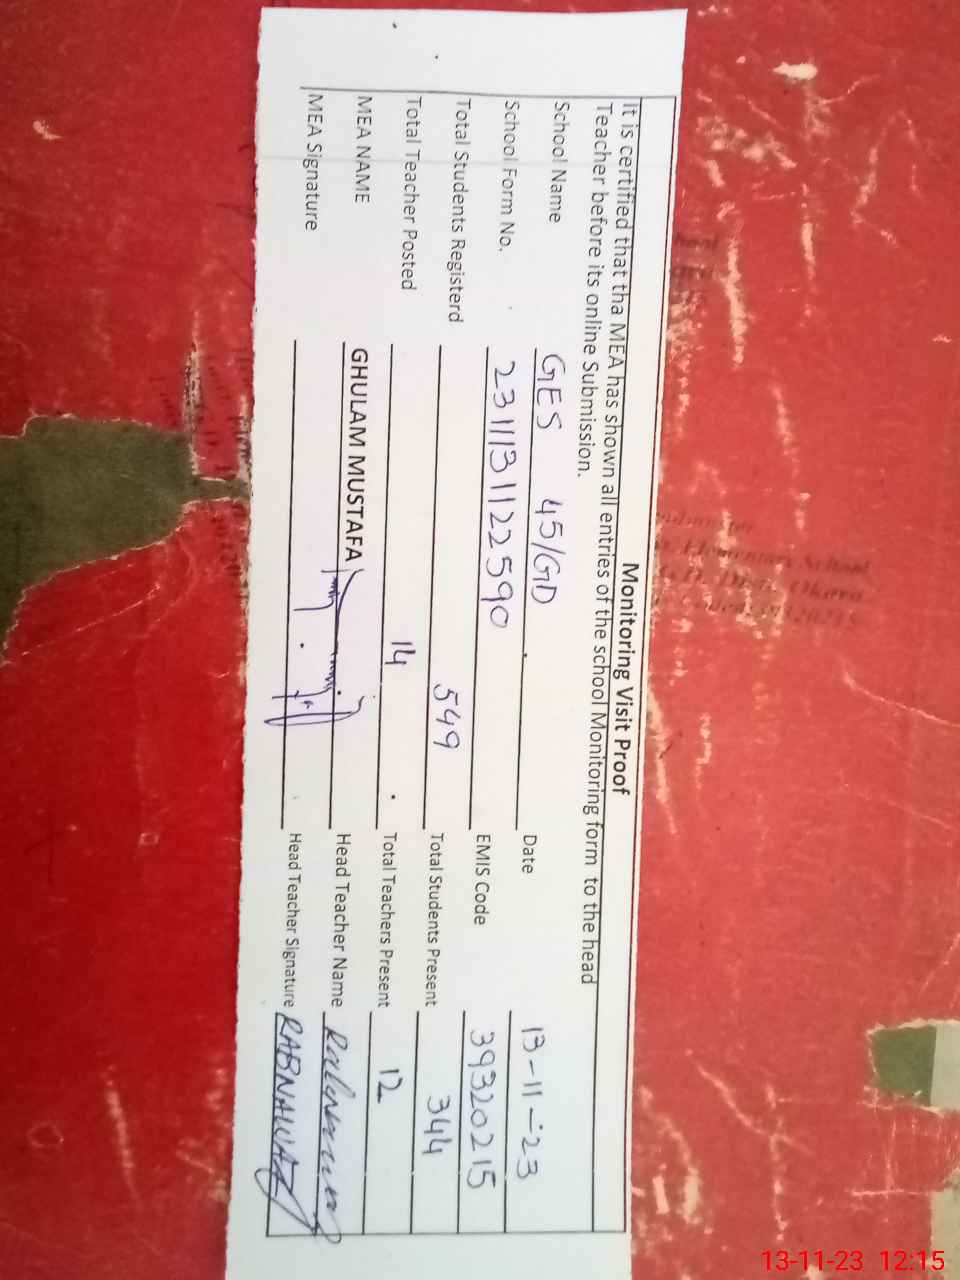 Monitoring Visit Proof
It is certified that tha MEA has shown all entries of the school Monitoring form to the head
Teacher before its online Submission.
School Name GES 45/GD Date 13-11-23
School Form No. 2311131122590 EMIS Code 39320215
Total Students Registerd 549 Total Students Present 344
Total Teacher Posted 14 Total Teachers Present 12
MEA NAME GHULAM MUSTAFA Head Teacher Name
MEA Signature Head Teacher Signature RABNAWAZ
Elementary School
13-11-23 12:15